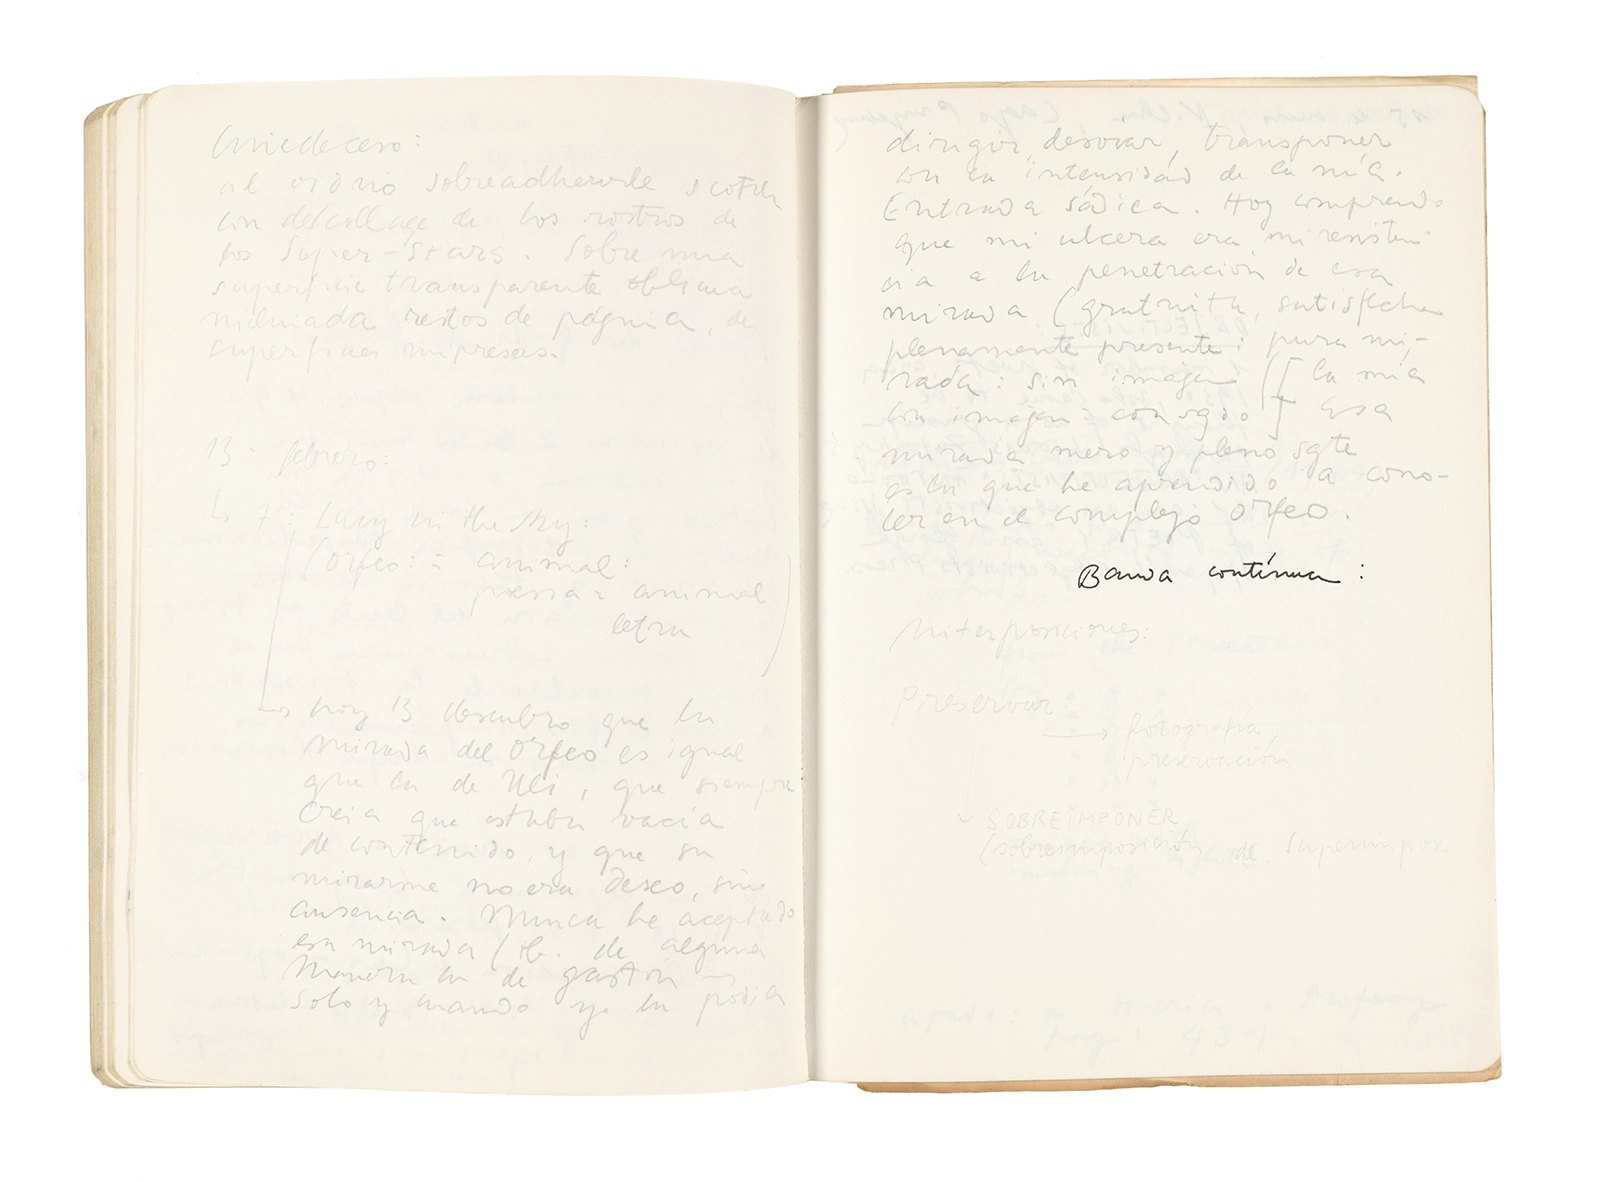 al vidrio sobreadherirle scotch
con decollage de los rostros de
los Super-Stars. Sobre una
superficie transparente oblicua
restos de página, de
superficies impresas.
13 - febrero:
↳ 7: Lucy in the sky:
(Orfeo: = animal:
poesía = animal
letra
→ hoy 13 descubro que la
mirada del Orfeo es igual
que la de Uli, que siempre
creía que estaba vacía
de contenido, y que su
mirarme no era deseo, sino
ausencia. Nunca he aceptado
esa mirada (tb. de alguna
manera la de gastón)
solo y cuando yo la podía
dirigir, desviar, transponer
con la intensidad de la mía.
Entrada sádica. Hoy comprendo
que mi ulcera era mi resisten-
cia a la penetración de esa
mirada (gratuita, satisfecha
plenamente presente: pura mi-
rada: sin imagen ([la mía
con imagen con sgdo] Esa
mirada mero y pleno sgte
es la que he aprendido a cono-
cer en el complejo Orfeo.
Banda contínua:
Interposiciones:
Preservar
→ fotografía,
preservación
SOBREIMPONER
(sobreimposición de superimpox